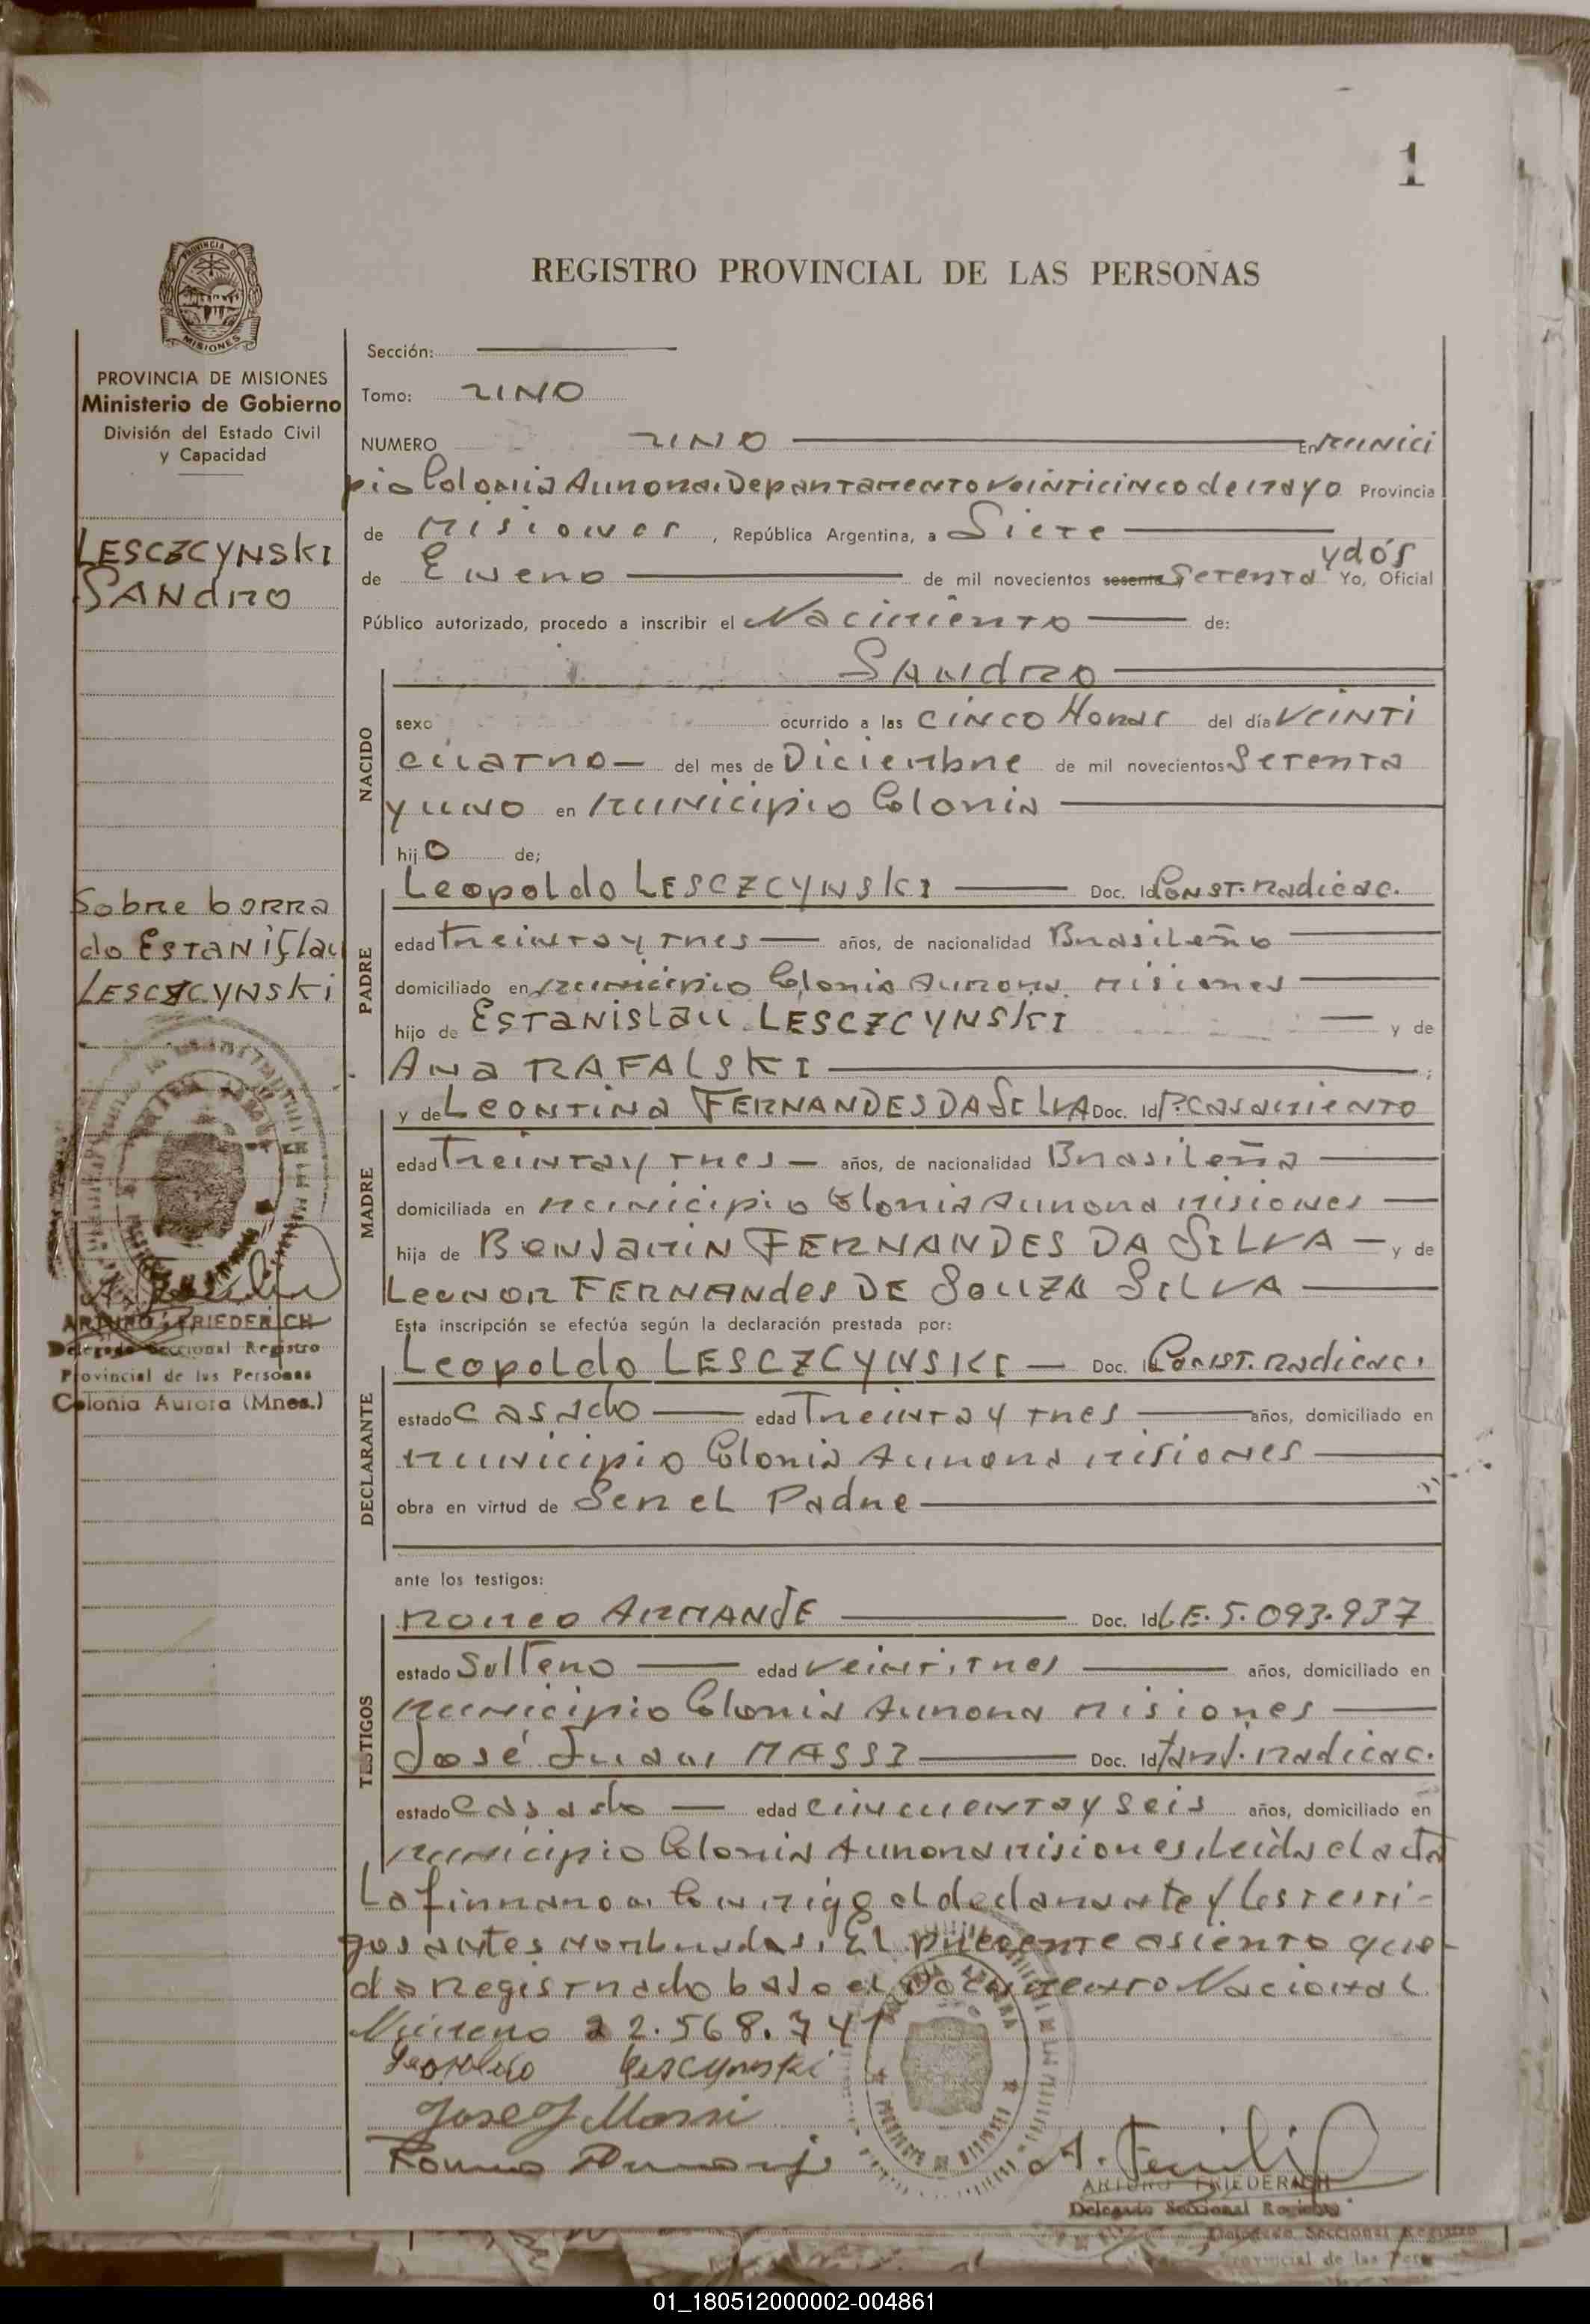 1
REGISTRO PROVINCIAL DE LAS PERSONAS
PROVINCIA DE MISIONES
Ministerio de Gobierno
División del Estado Civil
y Capacidad
LESCZCYNSKI
SANdRO
Sobre borra
do ESTANISlau
LESCZCYNSKI
ARTURO FRIEDERICH
Delegado Seccional Registro
Provincial de las Personas
Colonia Aurora (Mnes.)
Sección:
Tomo: UNO
NUMERO UNO En Munici
pio Colonia Aurora, Departamento Veinticinco de Mayo Provincia
de Misiones , República Argentina, a Siete
de Enero de mil novecientos sesenta Setenta y dós Yo, Oficial
Público autorizado, procedo a inscribir el Nacimiento de:
Sandro
NACIDO
sexo ocurrido a las CINCO Horas del día VeINTI
cuatro del mes de Diciembre de mil novecientos Setenta
y uno en Municipio Colonia
hijo de;
PADRE
Leopoldo LESCZCYNSKI Doc. Id Const. Radicac.
edad treinta y tres años, de nacionalidad Brasileño
domiciliado en Municipio Colonia Aurora Misiones
hijo de Estanislau LESCZCYNSKI y de
Ana RAFALSKI ;
MADRE
y de Leontina FERNANDES DA SILVA Doc. Id P. Casamiento
edad Treinta y tres años, de nacionalidad Brasileña
domiciliada en Municipio Colonia Aurora Misiones
hija de Benjamin FERNANDES DA SILVA y de
Leonor FERNANdes DE SOUZA SILVA
Esta inscripción se efectúa según la declaración prestada por:
DECLARANTE
Leopoldo LESCZCYNSKI Doc. Id Const. Radicac.
estado Casado edad Treinta y tres años, domiciliado en
Municipio Colonia Aurora Misiones
obra en virtud de Ser el Padre
ante los testigos:
TESTIGOS
Romeo ARMANJE Doc. Id L.E. 5.093.937
estado Soltero edad veintitres años, domiciliado en
Municipio Colonia Aurora Misiones
José Juan MASSI Doc. Id Radicac.
estado Casado edad cincuenta y seis años, domiciliado en
Municipio Colonia Aurora Misiones, leida el acta
La firmaron Conmigo el declarante y los testi-
gos antes nombrados, El presente asiento que-
da Registrado bajo el Documento Nacional
Número 22.568.741
Leopoldo Lescynski
Jose J Massi
Romeo Armanje
ARTURO FRIEDERICH
Delegado Seccional Registro
Delegado Seccional Registro
Provincial de las Pers
01_180512000002-004861